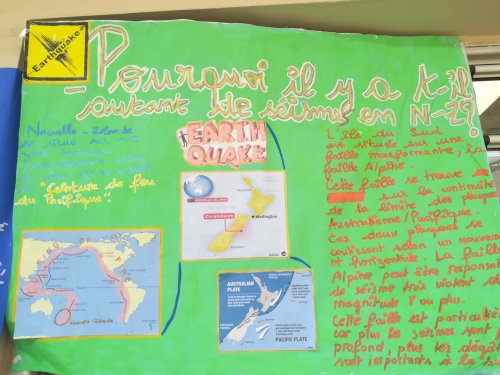 Earthquake
- Pourquoi il y a t-il
autant de séisme en N-Z?
Nouvelle-Zélande
se situe sur une
"Ceinture de feu
du Pacifique"
EARTH
QUAKE
NOUVELLE ZELANDE
Christchurch
Wellington
Nouvelle-Zélande
AUSTRALIAN
PLATE
PACIFIC PLATE
L'île du Sud
est située sur une
faille transformante, la
faille Alpine.
Cette faille se trouve
sur la continuité
de la limite des plaques
Australienne/Pacifique.
Ces deux plaques se
coulissent selon un mouvement
horizontale. La faille
Alpine peut être responsable
de séisme très violent de
magnitude 8 ou plus.
Cette faille est particulière
car plus les séismes sont
profond, plus les dégâts
sont importants à la su